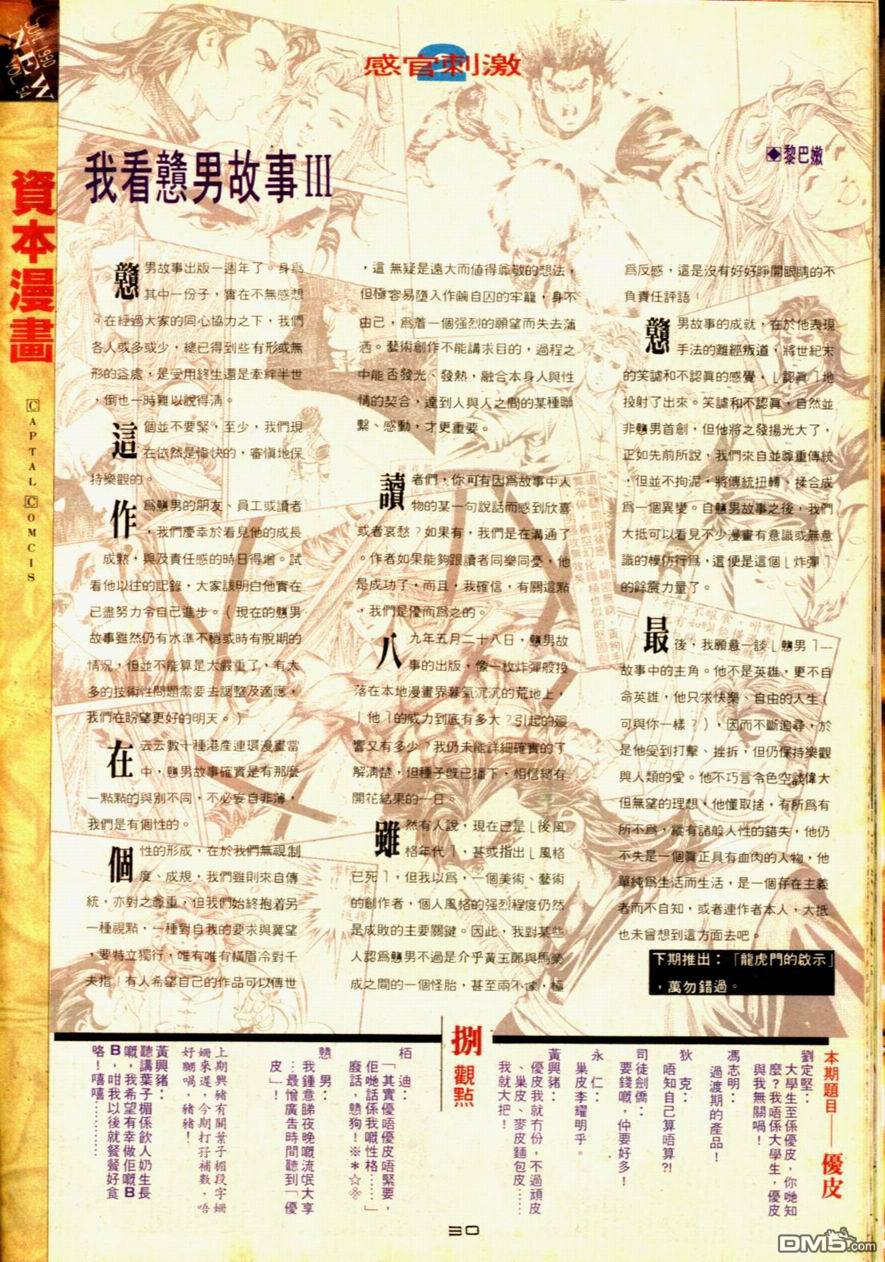 JUL 1990
NEW
VOL 54
資本漫畫
CAPTAL COMCIS
感官刺激
我看戇男故事III
黎巴嫩
戇男故事出版一週年了。身爲
其中一份子，實在不無感想
。在經過大家的同心協力之下，我們
各人或多或少，總已得到些有形或無
形的益處，是受用終生還是牽絆半世
，倒也一時難以說得清。
這個並不要緊，至少，我們現
在依然是愉快的，審愼地保
持樂觀的。
作爲戇男的朋友、員工或讀者
，我們慶幸於看見他的成長
、成熟，與及責任感的時日得增。試
看他以往的記錄，大家該明白他實在
已盡努力令自己進步。（現在的戇男
故事雖然仍有水準不穩或時有脫期的
情況，但並不能算是太嚴重了，有太
多的技術性問題需要去調整及適應，
我們在盼望更好的明天。）
在云云數十種港產連環漫畫當
中，戇男故事確實是有那麼
一點點的與別不同，不必妄自菲薄，
我們是有個性的。
個性的形成，在於我們無視制
度、成規，我們雖則來自傳
統，亦對之尊重，但我們始終抱着另
一種視點，一種對自我的要求與冀望
，要特立獨行，唯有唯有橫眉冷對千
夫指！有人希望自己的作品可以傳世
，這無疑是遠大而値得尊敬的想法，
但極容易墮入作繭自囚的牢籠，身不
由己，爲着一個强烈的願望而失去蒲
洒。藝術創作不能講求目的，過程之
中能否發光、發熱，融合本身人與性
情的契合，達到人與人之間的某種聯
繫、感動，才更重要。
讀者們，你可有因爲故事中人
物的某一句說話而感到欣喜
或者哀愁？如果有，我們是在溝通了
。作者如果能夠跟讀者同樂同憂，他
是成功了，而且，我確信，有關這點
，我們是優而爲之的。
八九年五月二十八日，戇男故
事的出版，像一枚炸彈般投
落在本地漫畫界暮氣沉沉的荒地上，
﹂他﹁的威力到底有多大？引起的迴
響又有多少？我仍未能詳細確實的了
解淸楚，但種子旣已播下，相信總有
開花結果的一日。
雖然有人說，現在已是﹂後風
格年代﹁，甚或指出﹂風格
已死﹁，但我以爲，一個美術、藝術
的創作者，個人風格的强烈程度仍然
是成敗的主要關鍵。因此，我對某些
人認爲戇男不過是介乎黃玉郎與馬榮
成之間的一個怪胎，甚至兩不像，極
爲反感，這是沒有好好睜開眼睛的不
負責任評語。
戇男故事的成就，在於他表現
手法的離經叛道，將世紀末
的笑謔和不認眞的感覺，﹂認眞﹁地
投射了出來。笑謔和不認眞，自然並
非戇男首創，但他將之發揚光大了，
正如先前所說，我們來自並尊重傳統
，但並不拘泥，將傳統扭轉、揉合成
爲一個異變。自戇男故事之後，我們
大抵可以看見不少漫畫有意識或無意
識的模仿行爲，這便是這個﹂炸彈﹁
的餘震力量了。
最後，我願意一談﹂戇男﹁—
故事中的主角。他不是英雄，更不自
命英雄，他只求快樂、自由的人生（
可與你一樣？），因而不斷追尋，於
是他受到打擊、挫拆，但仍保持樂觀
與人類的愛。他不巧言令色空談偉大
但無望的理想，他懂取捨，有所爲有
所不爲，縱有諸般人性的錯失，他仍
不失是一個眞正具有血肉的人物，他
單純爲生活而生活，是一個存在主義
者而不自知，或者連作者本人，大抵
也未曾想到這方面去吧。
下期推出：「龍虎門的啟示」
，萬勿錯過。
本期題目——優皮
劉定堅：
大學生至係優皮，你哋知
麼？我唔係大學生，優皮
與我無關喎！
馮志明：
過渡期的產品！
狄　克：
唔知自己算唔算?!
司徒劍僑：
要錢嘅，仲要好多！
永　仁：
巢皮李耀明乎。
黃興豬：
優皮我就冇份，不過頑皮
、巢皮、麥皮麵包皮……
我就大把！
捌觀點
栢　迪：
「其實優唔優皮唔緊要，
佢哋話係我嘅性格……」
廢話，戇狗！※＊☆※
戇　男：
我鍾意睇夜晚嘅流氓大亨
…最憎廣告時間聽到「優
皮」！
上期興豬有關葉子楣段字姍
姍來遲，今期打孖補數，唔
好嬲喎，豬豬！
黃興豬：
聽講葉子楣係飲人奶生長
嘅，我希望有幸做佢嘅B
B，咁我以後就餐餐好食
咯！嘻嘻………
30
DM5.com